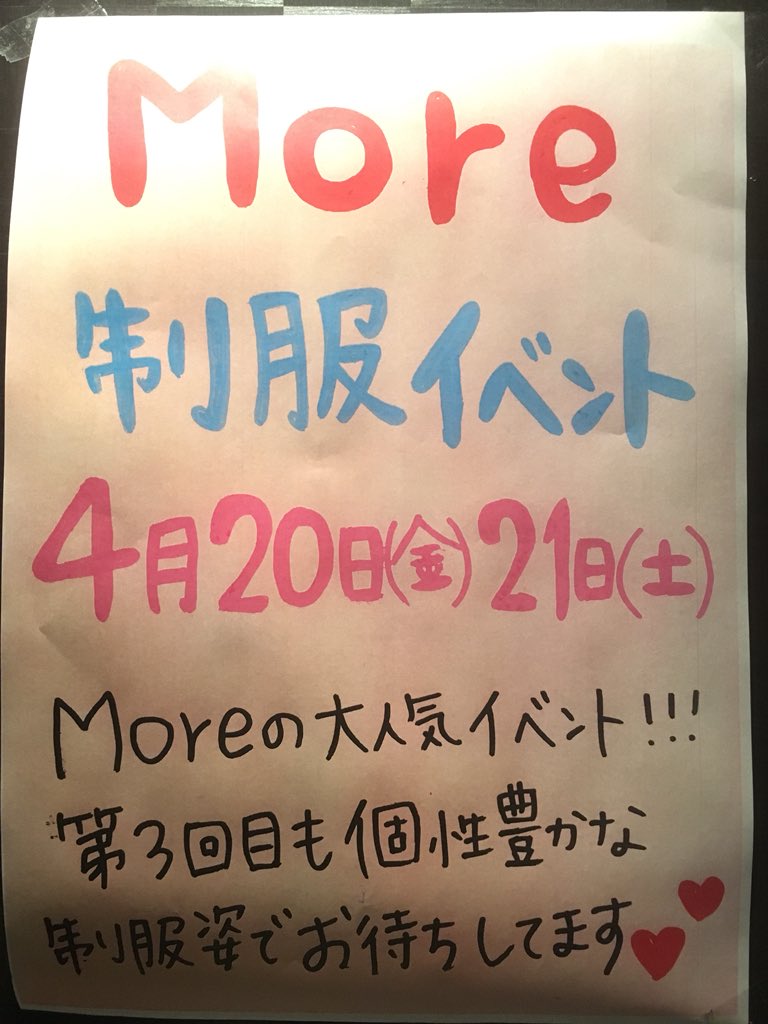 More
制服イベント
4月20日(金)21日(土)
Moreの大人気イベント!!!
第3回目も個性豊かな
制服姿でお待ちしてます